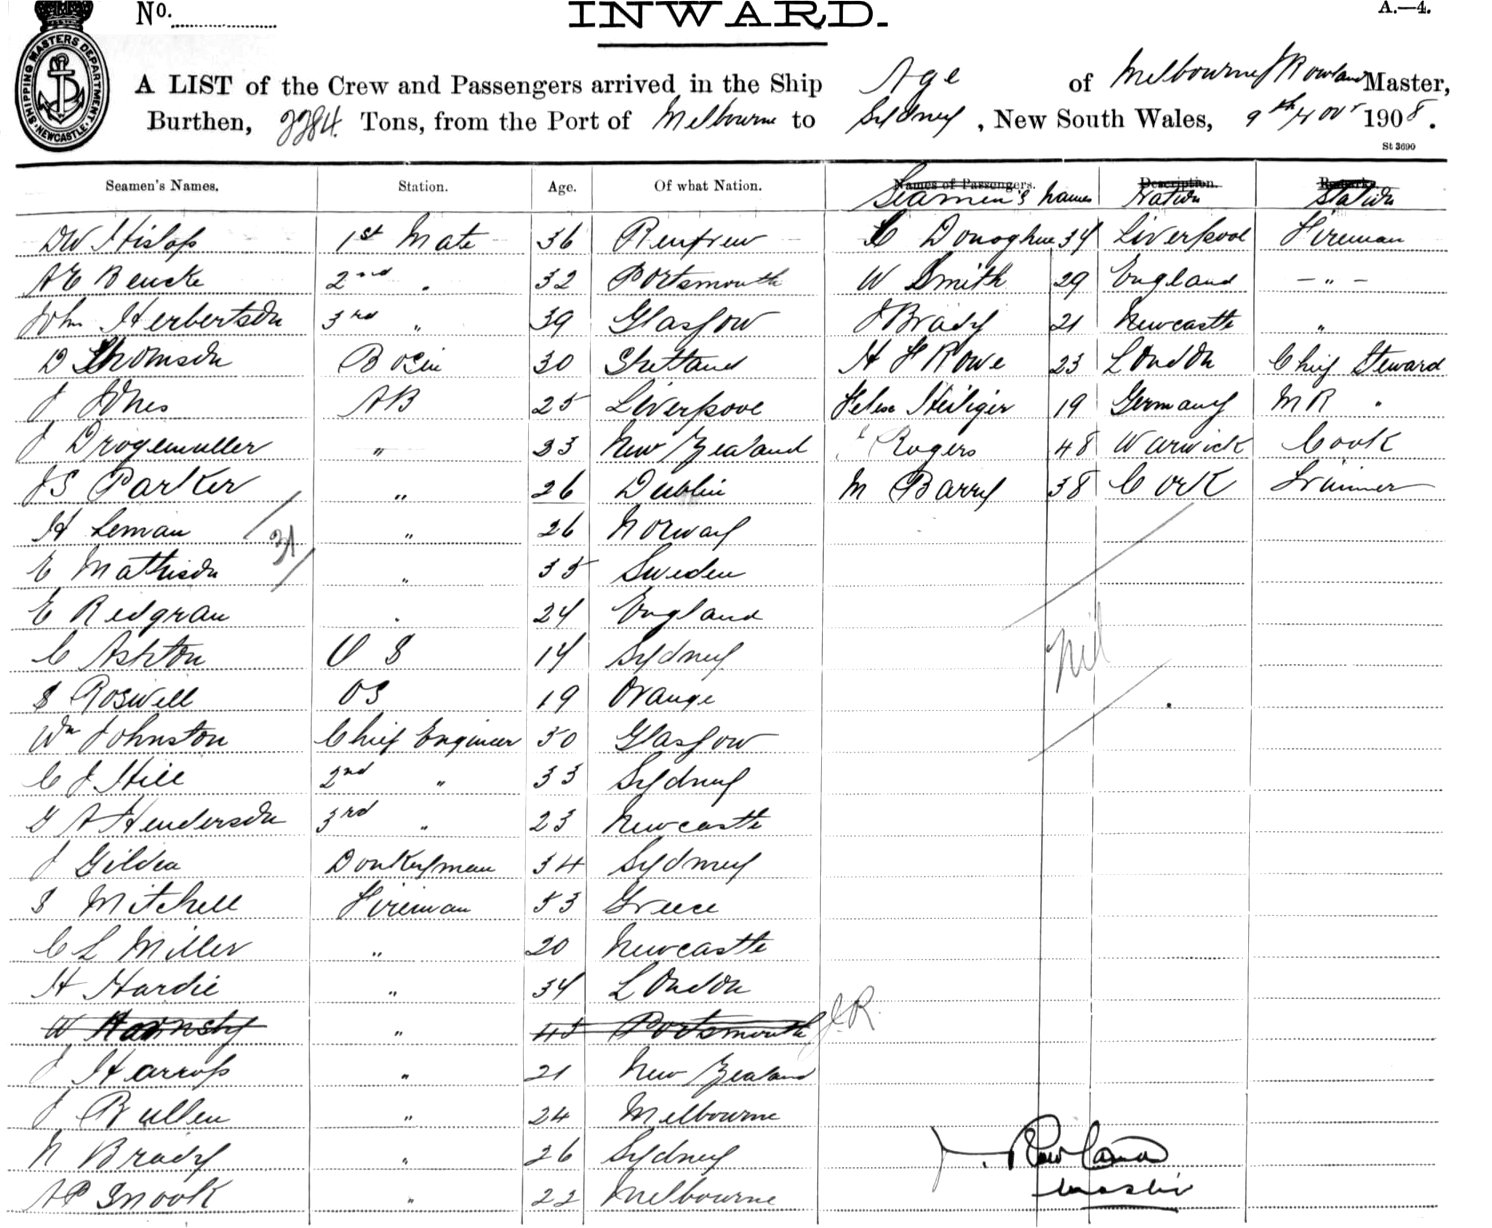 No.
INWARD.
A.—4.
SHIPPING MASTERS DEPARTMENT NEWCASTLE
A LIST of the Crew and Passengers arrived in the Ship Age of Melbourne J Rowland Master,
Burthen, 2284 Tons, from the Port of Melbourne to Sydney, New South Wales, 9th Novr 1908.
St 3690
Seamen's Names. Station. Age. Of what Nation. Names of Passengers. Description. Remarks.
Seamen's Names Nation Station
DW Hislop 1st Mate 36 Renfrew Donoghue 34 Liverpool Fireman
AE Bencke 2nd " 32 Portsmouth W Smith 29 England - " -
John Herbertson 3rd " 39 Glasgow J Brady 21 Newcastle "
D Thomson Bosin 30 Shetland H F Rowe 23 London Chief Steward
J Jones AB 25 Liverpool Heiliger 19 Germany MR "
J Drogemuller " 33 New Zealand Rogers 48 Warwick Cook
JS Parker " 26 Dublin M Barry 38 Cork Trimmer
H Leman " 26 Norway
31
E Mathison " 35 Sweden
E Redgrau " 24 England
C Ashton O S 14 Sydney
nil
S Roswell OS 19 Orange
Wm Johnston Chief Engineer 30 Glasgow
C J Hill 2nd " 33 Sydney
G A Henderson 3rd " 23 Newcastle
J Gildea Donkeyman 34 Sydney
S Mitchell Fireman 53 Greece
C L Miller " 20 Newcastle
H Hardie " 34 London
W Hornsby " 45 Portsmouth J.R.
J Harrop " 21 New Zealand
J Bullen " 24 Melbourne
N Brady " 26 Sydney
J. Rowland
AP Snook " 22 Melbourne
Master